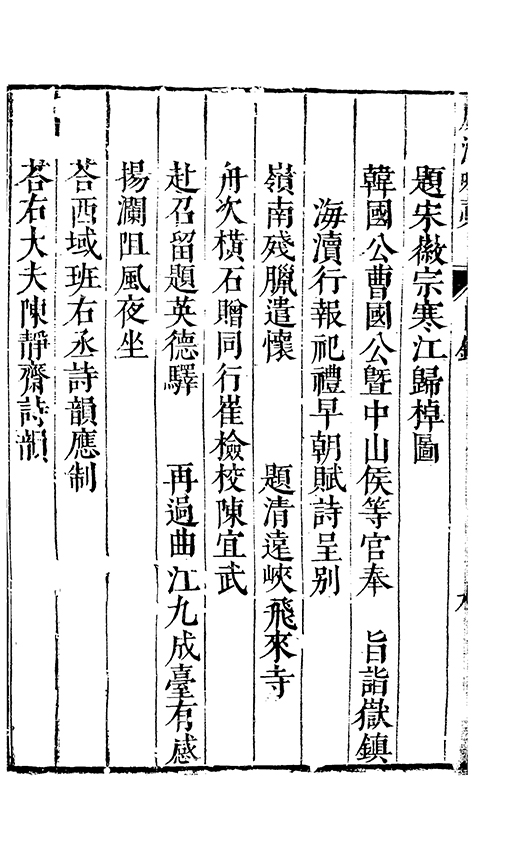 題宋徽宗寒江歸棹圖
韓國公曹國公曁中山侯等官奉　旨詣嶽鎮
海瀆行報祀禮早朝賦詩呈别
嶺南殘臘遣懷　題清遠峽飛來寺
舟次橫石贈同行崔檢校陳宜武
赴召留題英德驛　再過曲江九成臺有感
揚瀾阻風夜坐
荅西域班右丞詩韻應制
荅右大夫陳靜齋詩韻